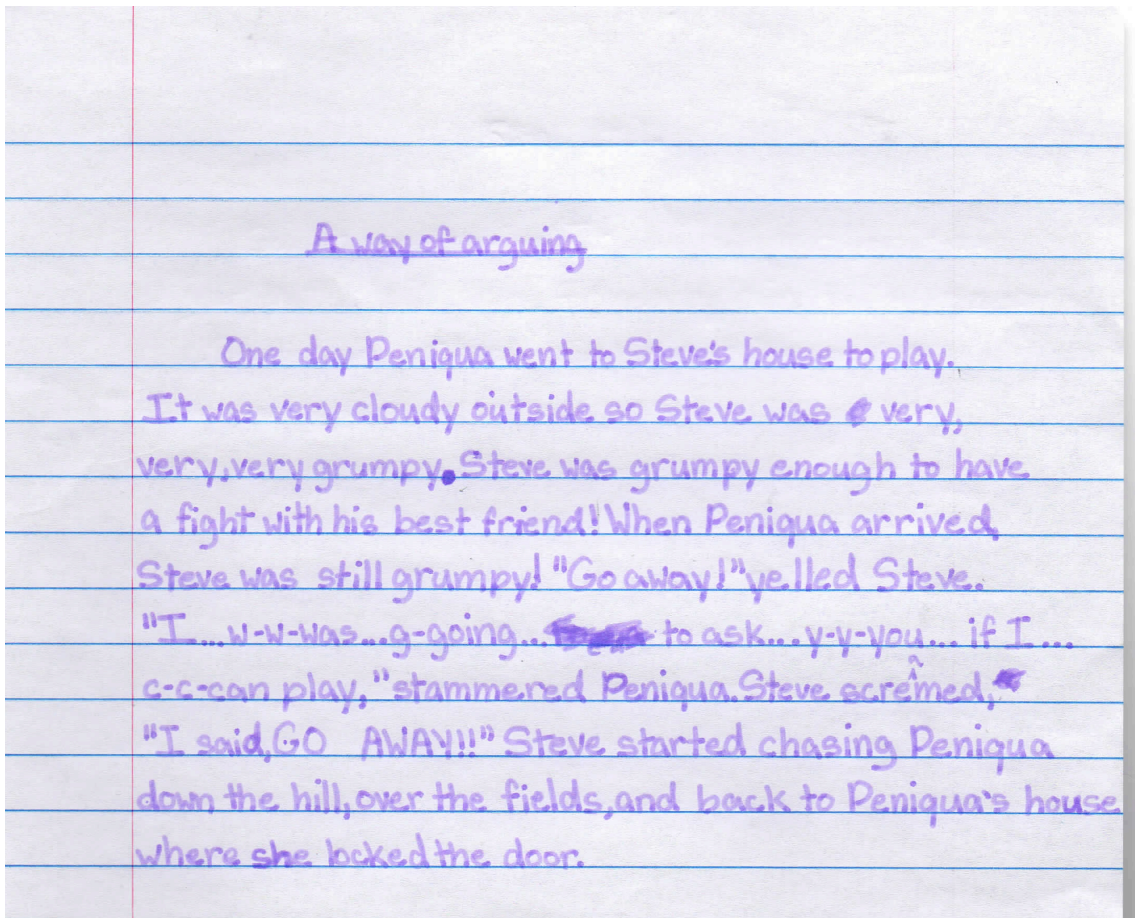 A way of arguing
One day Peniqua went to Steve's house to play.
It was very cloudy outside so Steve was very,
very, very grumpy. Steve was grumpy enough to have
a fight with his best friend! When Peniqua arrived,
Steve was still grumpy! "Go away!" yelled Steve.
"I...w-w-was...g-going... to ask....y-y-you... if I...
c-c-can play," stammered Peniqua. Steve screamed,
"I said, GO AWAY!!" Steve started chasing Peniqua
down the hill, over the fields, and back to Peniqua's house
where she locked the door.